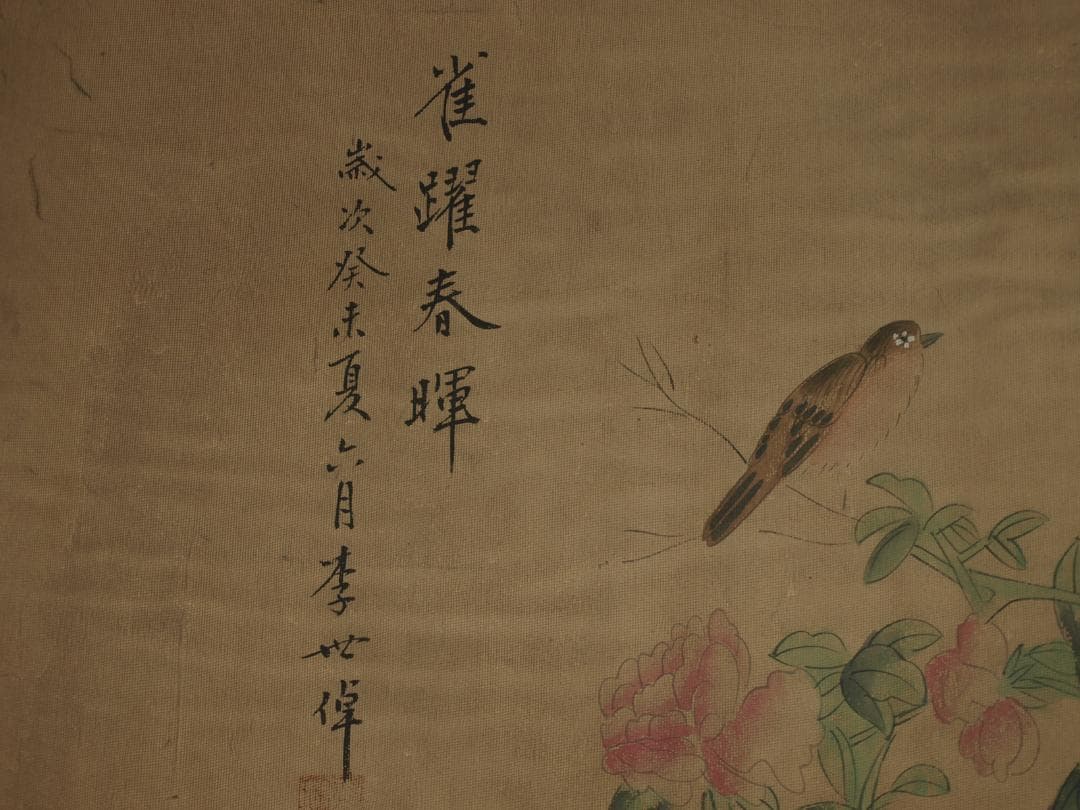 雀躍春暉
歲次癸未夏六月李世倬